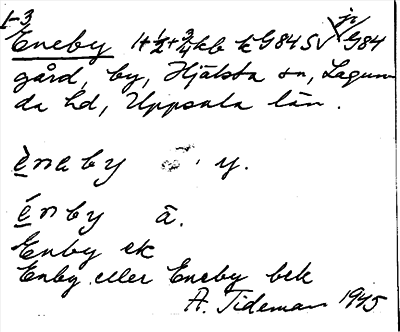 1-3
Eneby 1+½+¾ kb k G84 SV G84
gård, by, Hjälsta sn, Lagun
da hd, Uppsala län.
èneby y.
énby ä.
Enby ek
Enby eller Eneby bek
A. Tideman 1945